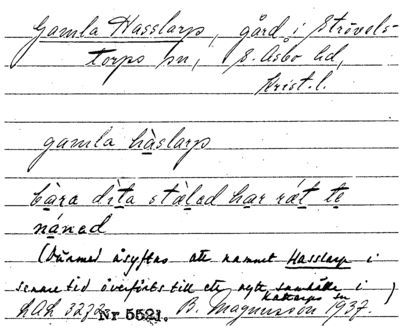 Gamla Hasslarp, gård i Strövels-
torps sn, S. Åsbo hd,
Krist. l.
gamla hàslarp
bàra dìta stàled har rát te
nánad
(Därmed åsyftas att namnet Hasslarp i
senare tid överförts till ett nytt samhälle i
Kattarps sn)
LAL 3272 Nr 5521. B. Magnusson 1937.